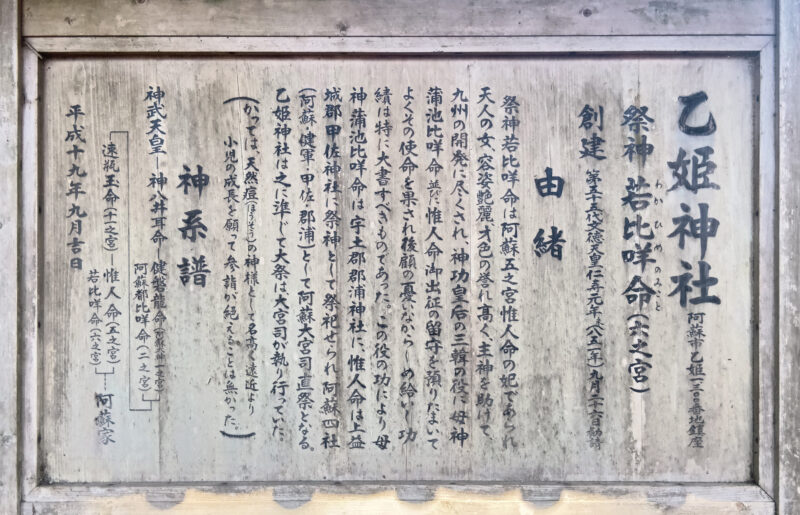 乙姫神社
阿蘇市乙姫一三〇〇番地鎮座
わかひめのみこと
祭神 若比咩命(六之宮)
創建 第五十五代文徳天皇仁寿元年(八五一年)九月二十六日勧請
由緒
祭神若比咩命は阿蘇五之宮惟人命の妃であられ
天人の女、容姿艶麗才色の誉れ高く主神を助けて
九州の開発に尽くされ、神功皇后の三韓の役に母神
蒲池比咩命並びに惟人命御出征の留守を預りたまいて
よくその使命を果され後顧の憂いなからしめ給いし功
績は特に大書すべきものであった。この役の功により母
神蒲池比咩命は宇土郡郡浦神社に、惟人命は上益
城郡甲佐神社に祭神として祭祀せられ阿蘇四社
(阿蘇・健軍・甲佐・郡浦)として阿蘇大宮司直祭となる。
乙姫神社は之に準じて大祭は大宮司が執り行っていた。
(かっては、天然痘(ほうそう)の神様として名高く遠近より
小児の成長を願って参詣が絶えることは無かった。)
神系譜
神武天皇―神八井耳命―健磐龍命(阿蘇神一之宮)
阿蘇都比咩命(二之宮)
速瓶玉命(十一之宮)―惟人命(五之宮)
若比咩命(六之宮)
阿蘇家
平成十九年九月吉日